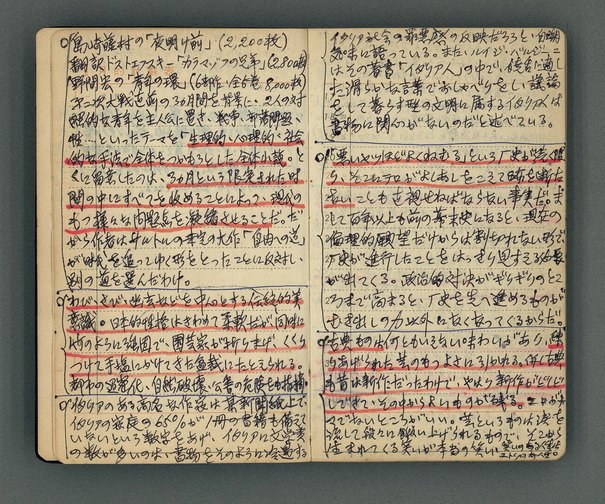 島崎藤村の「夜明け前」(2,200枚)
翻訳ドストエフスキー「カラマーゾフの兄弟」(2,800枚)
野間宏の「青年の環」(6部作・全5巻 8,000枚)
第二次大戦直前の3カ月間を背景に、2人の対
照的な青年を主人公に置き、戦争、部落問題、
性…といったテーマを「生理的・心理的・社会
的な手法で全体をつかもうとした全体小説。と
くに留意したのは、3カ月という限定された時
間の中にすべてを収めることによって、現代の
もつ様々な問題を凝縮させることだ。だ
から作者はサルトルの未完の大作「自由への道」
が時代を追ってゆく形をとったことに反対し、
別の道を選んだわけ。
わび、さび、幽玄などを中心とする伝統的美
意識。日本的性格はきわめて柔軟だが同時に
つけて手塩にかけてきた盆栽にたとえられる。
都市の過密化、自然破壊、公害の危険も指摘
イタリアのある高名な作家は某新聞紙上で
イタリア家庭の65%が一冊の書籍も備えて
いないという数字をあげ、イタリアに文学賞
の数が多いのは書物をそのように
イタリア社会の罪悪感の反映だろうと自嘲
気味に語っている。また、ルイジ・ベルジーニ
はその著書「イタリア人」の中で、
た滑らかな言葉でおしゃべりをし、議論
をして暮らす型の文明に属するイタリア人は
書物に関心がないのだと述べている。
「悪いやつほどよくねむる」という歴史が
り、そこにテロがよしあしをこえて跡を断た
ないことも直視せねばならない事実だ。ま
して百年以上も前の幕末史になると、現在の
倫理的願望だけからは割りきれない形で
歴史が進行したことをはっきり見すえる必要
が出てくる。政治的対決がギリギリのと
ころまで高まると、歴史を先へ進めるものが
むき出しの力以外になくなってくるからだ。
古典もの、何ともいえない味わいがあり、練
りあげられた芸のもつよさにひかれる。
も昔は新作だったわけで、やはり新作がどしどし
でてきて、その中からよいものが残る。
でないところがいい。芸というものは波を
流して段々に鍛え上げられるもので、そこから
生まれてくる笑いが本当の笑い。